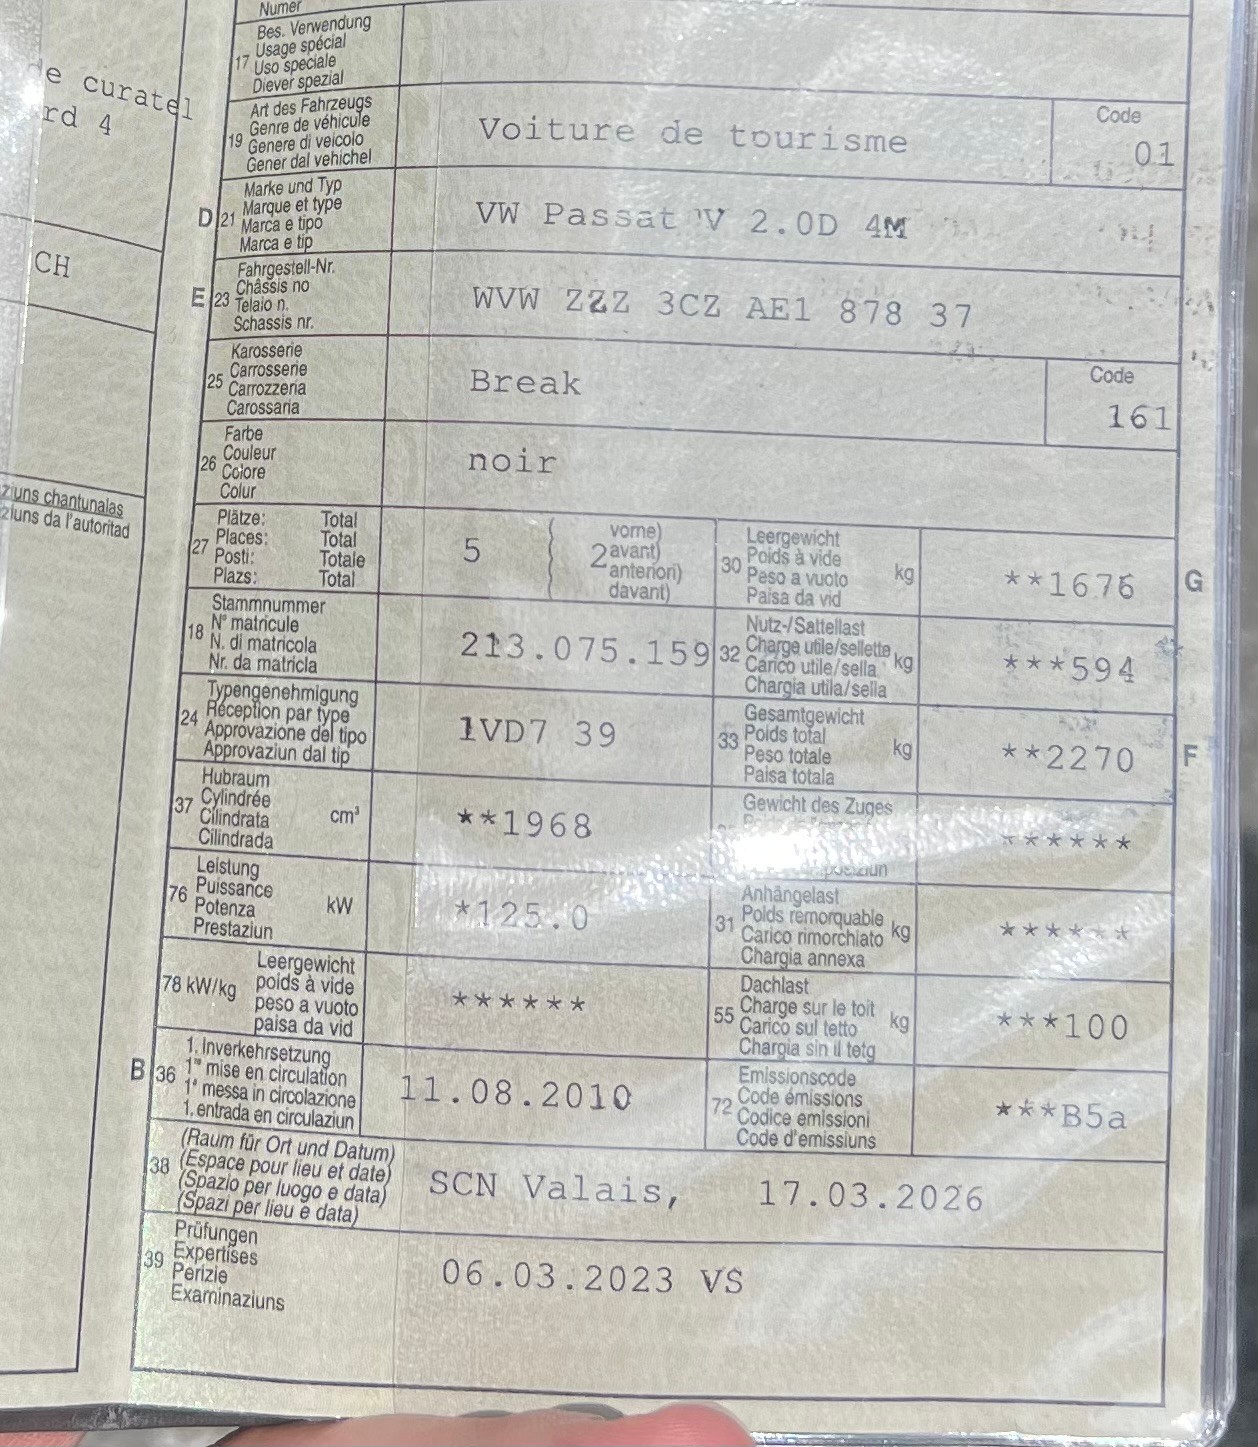 Numer
e curatel
rd 4
CH
ziuns chantunalas
ziuns da l'autoritad
17 Bes. Verwendung
Usage spécial
Uso speciale
Diever spezial
19 Art des Fahrzeugs
Genre de véhicule
Genere di veicolo
Gener dal vehichel
Voiture de tourisme
Code
01
D 21 Marke und Typ
Marque et type
Marca e tipo
Marca e tip
VW Passat V 2.0D 4M
E 23 Fahrgestell-Nr.
Châssis no
Telaio n.
Schassis nr.
WVW ZZZ 3CZ AE1 878 37
25 Karosserie
Carrosserie
Carrozzeria
Carossaria
Break
Code
161
26 Farbe
Couleur
Colore
Colur
noir
27 Plätze: Total
Places: Total
Posti: Totale
Plazs: Total
5
2 vorne)
avant)
anteriori)
davant)
30 Leergewicht
Poids à vide
Peso a vuoto
Paisa da vid
kg
**1676
G
18 Stammnummer
N° matricule
N. di matricola
Nr. da matricla
213.075.159
32 Nutz-/Sattellast
Charge utile/sellette
Carico utile/sella
Chargia utila/sella
kg
***594
24 Typengenehmigung
Réception par type
Approvazione del tipo
Approvaziun dal tip
1VD7 39
33 Gesamtgewicht
Poids total
Peso totale
Paisa totala
kg
**2270
F
37 Hubraum
Cylindrée
Cilindrata
Cilindrada
cm³
**1968
Gewicht des Zuges
******
76 Leistung
Puissance
Potenza
Prestaziun
kW
*125.0
31 Anhängelast
Poids remorquable
Carico rimorchiato
Chargia annexa
kg
******
78 kW/kg
Leergewicht
poids à vide
peso a vuoto
paisa da vid
******
55 Dachlast
Charge sur le toit
Carico sul tetto
Chargia sin il tetg
kg
***100
B 36 1. Inverkehrsetzung
1re mise en circulation
1a messa in circolazione
1. entrada en circulaziun
11.08.2010
72 Emissionscode
Code émissions
Codice emissioni
Code d'emissiuns
***B5a
38 (Raum für Ort und Datum)
(Espace pour lieu et date)
(Spazio per luogo e data)
(Spazi per lieu e data)
SCN Valais, 17.03.2026
39 Prüfungen
Expertises
Perizie
Examinaziuns
06.03.2023 VS